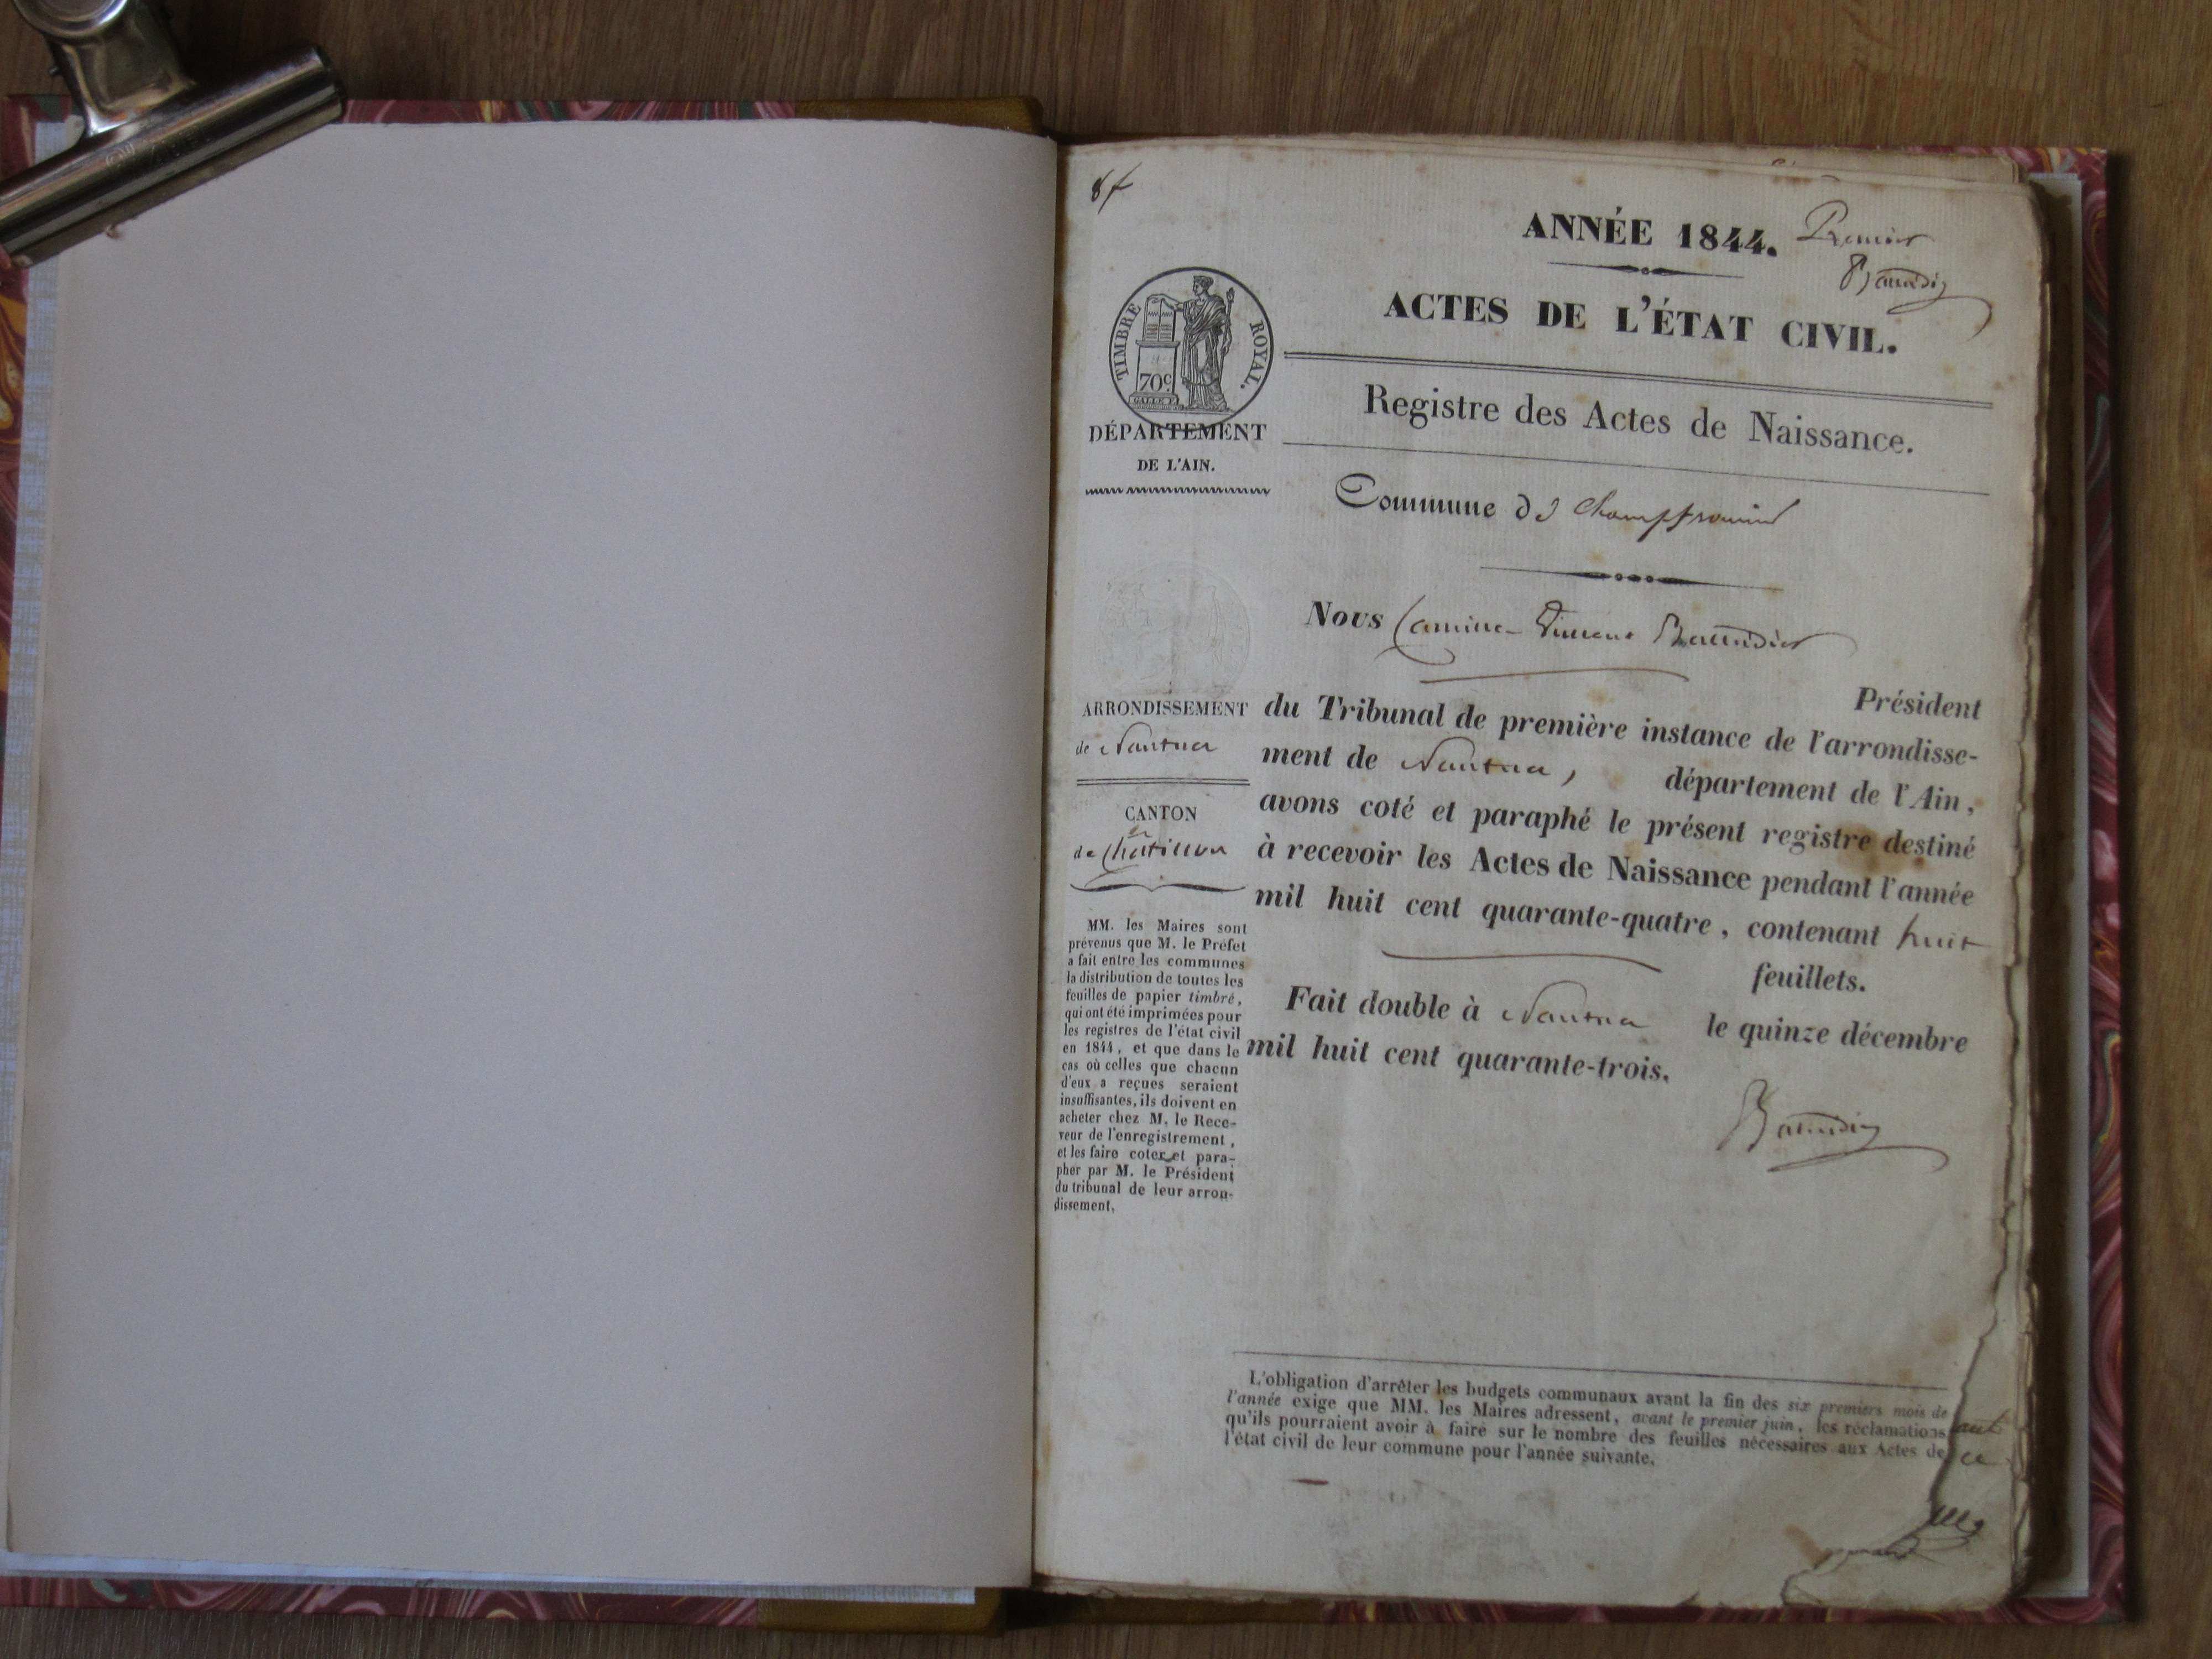 8f
ANNÉE 1844. Premier
ACTES DE L'ÉTAT CIVIL.
TIMBRE ROYAL.
70c
GALLE F.
DÉPARTEMENT
DE L'AIN.
Registre des Actes de Naissance.
Commune de Champfromier
Nous Camille Baudier
Président
ARRONDISSEMENT
de Nantua
CANTON
de Châtillon
du Tribunal de première instance de l'arrondisse-
ment de Nantua, département de l'Ain,
avons coté et paraphé le présent registre destiné
à recevoir les Actes de Naissance pendant l'année
mil huit cent quarante-quatre, contenant huit
feuillets.
Fait double à Nantua le quinze décembre
mil huit cent quarante-trois.
MM. les Maires sont
prévenus que M. le Préfet
a fait entre les communes
la distribution de toutes les
feuilles de papier timbré,
qui ont été imprimées pour
les registres de l'état civil
en 1844, et que dans le
cas où celles que chacun
d'eux a reçues seraient
insuffisantes, ils doivent en
acheter chez M. le Rece-
veur de l'enregistrement,
et les faire coter et para-
pher par M. le Président
du tribunal de leur arron-
dissement.
L'obligation d'arrêter les budgets communaux avant la fin des six premiers mois de
l'année exige que MM. les Maires adressent, avant le premier juin, les réclamations
qu'ils pourraient avoir à faire sur le nombre des feuilles nécessaires aux Actes de
l'état civil de leur commune pour l'année suivante.